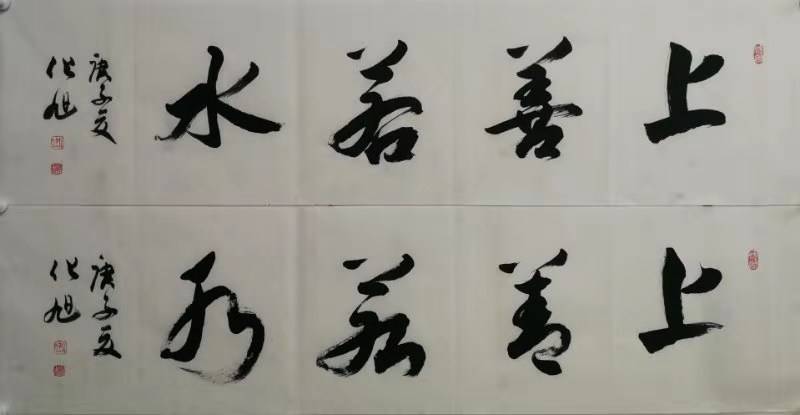 上善若水
庚子夏
代旭
上善若水
庚子夏
代旭